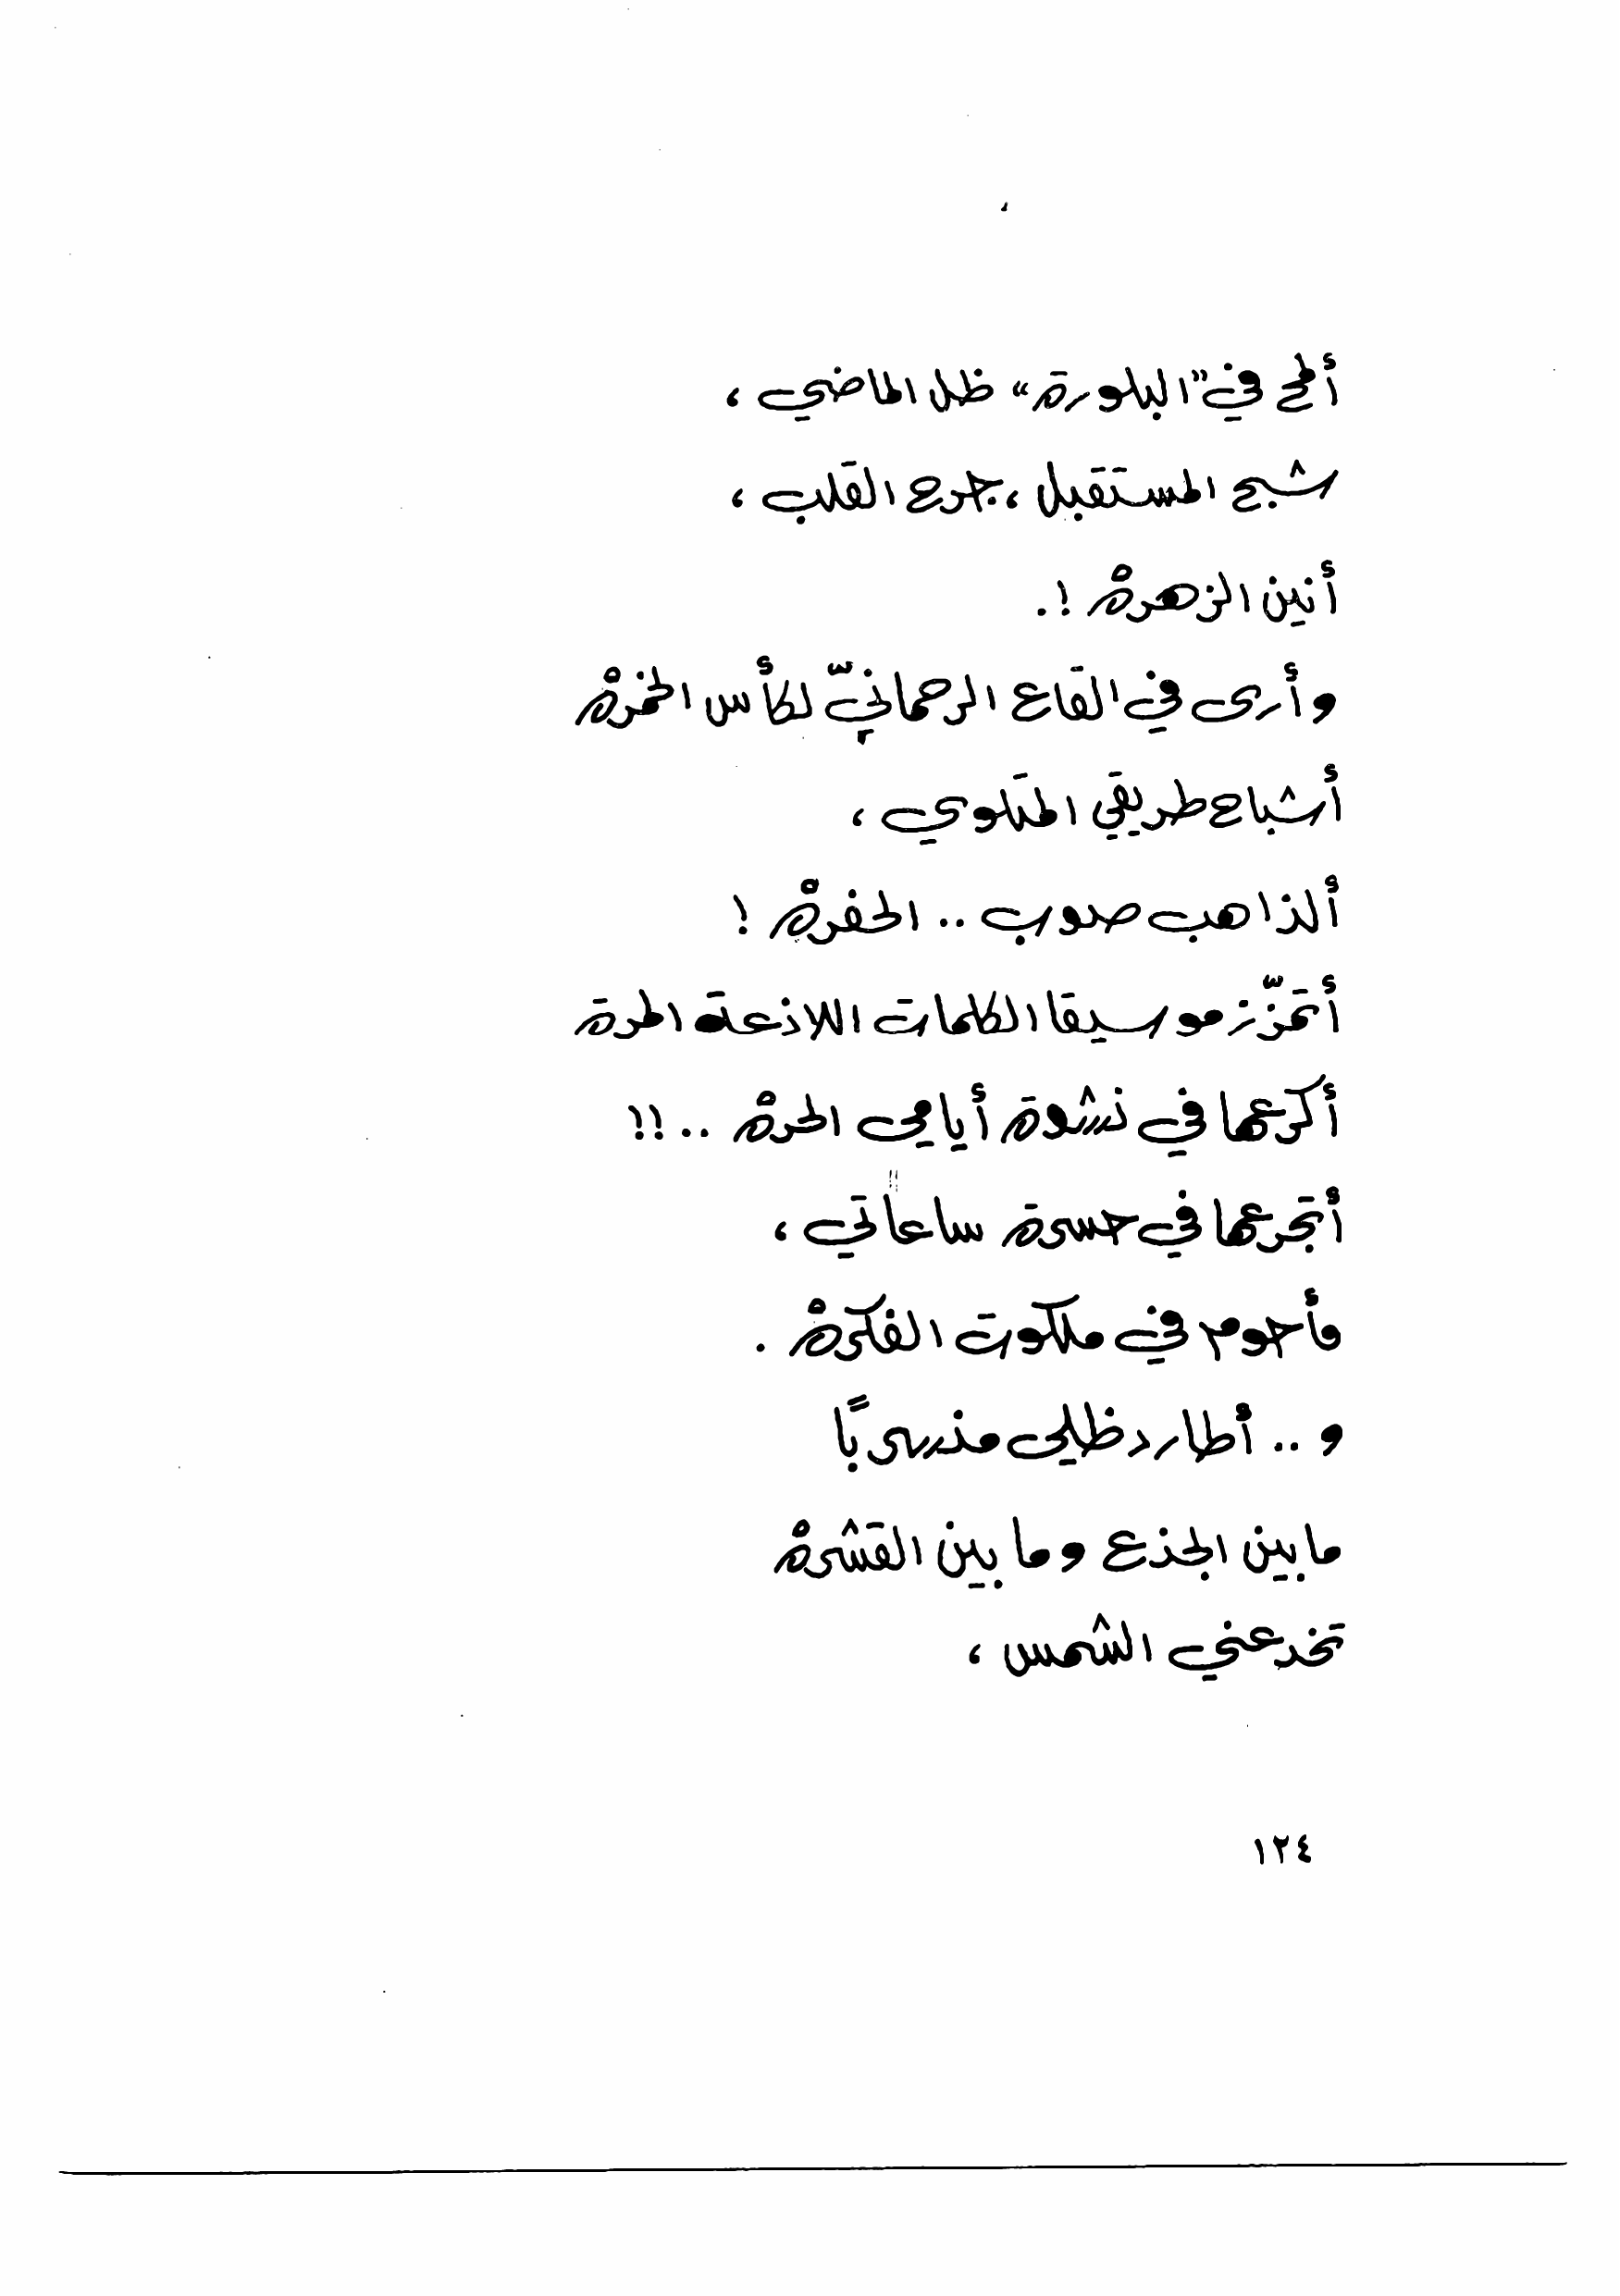 ألمح في "البلورة" ظل الماضي ،
شبح المستقبل ، جرح القلب ،
أنين الزهرةْ !.
وأرى في القاع الرحمانيّ لكأس الخمرةْ
أشباح طريقي الملتوي ،
ألذاهب صوب .. الحفرةْ !
أتمزّز موسيقا الكلمات اللاذعة المرة
أكرعها في نشوة أيامي الحرةْ ..!!
أتجرعها في حسرة ساعاتي ،
فأحوم في ملكوت الفكرةْ .
و .. أطارد ظلي منسربًا
ما بين الجذع وما بين القشرةْ
تخدعني الشمس ،
١٢٤